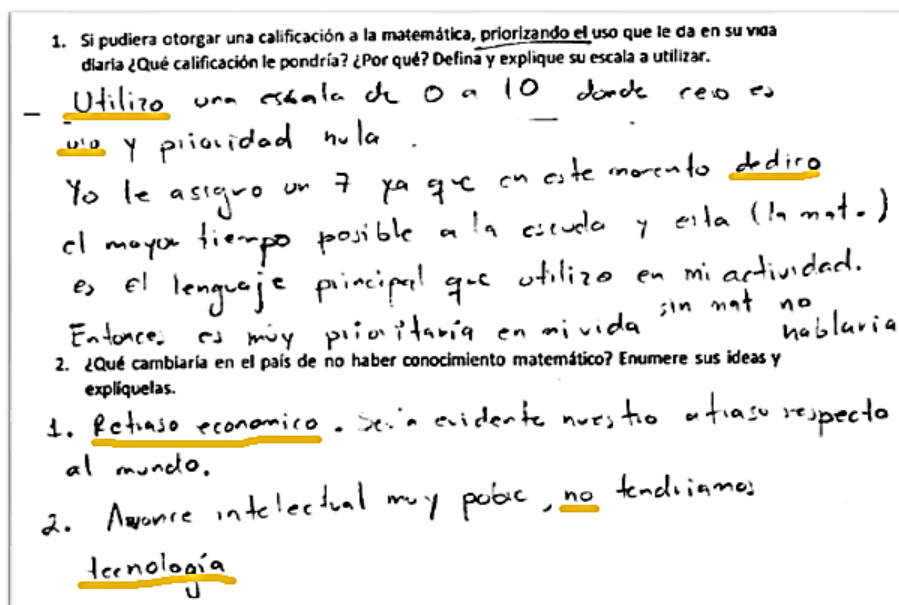 1. Si pudiera otorgar una calificación a la matemática, priorizando el uso que le da en su vida
diaria ¿Qué calificación le pondría? ¿Por qué? Defina y explique su escala a utilizar.
– Utilizo una escala de 0 a 10 donde cero es
uso y prioridad nula.
Yo le asigno un 7 ya que en este momento dedico
el mayor tiempo posible a la escuela y esta (la mat.)
es el lenguaje principal que utilizo en mi actividad.
Entonces es muy prioritaria en mi vida sin mat no
hablaria
2. ¿Qué cambiaría en el país de no haber conocimiento matemático? Enumere sus ideas y
explíquelas.
1. Retraso economico. Seria evidente nuestro atraso respecto
al mundo.
2. Avance intelectual muy pobre, no tendriamos
tecnología